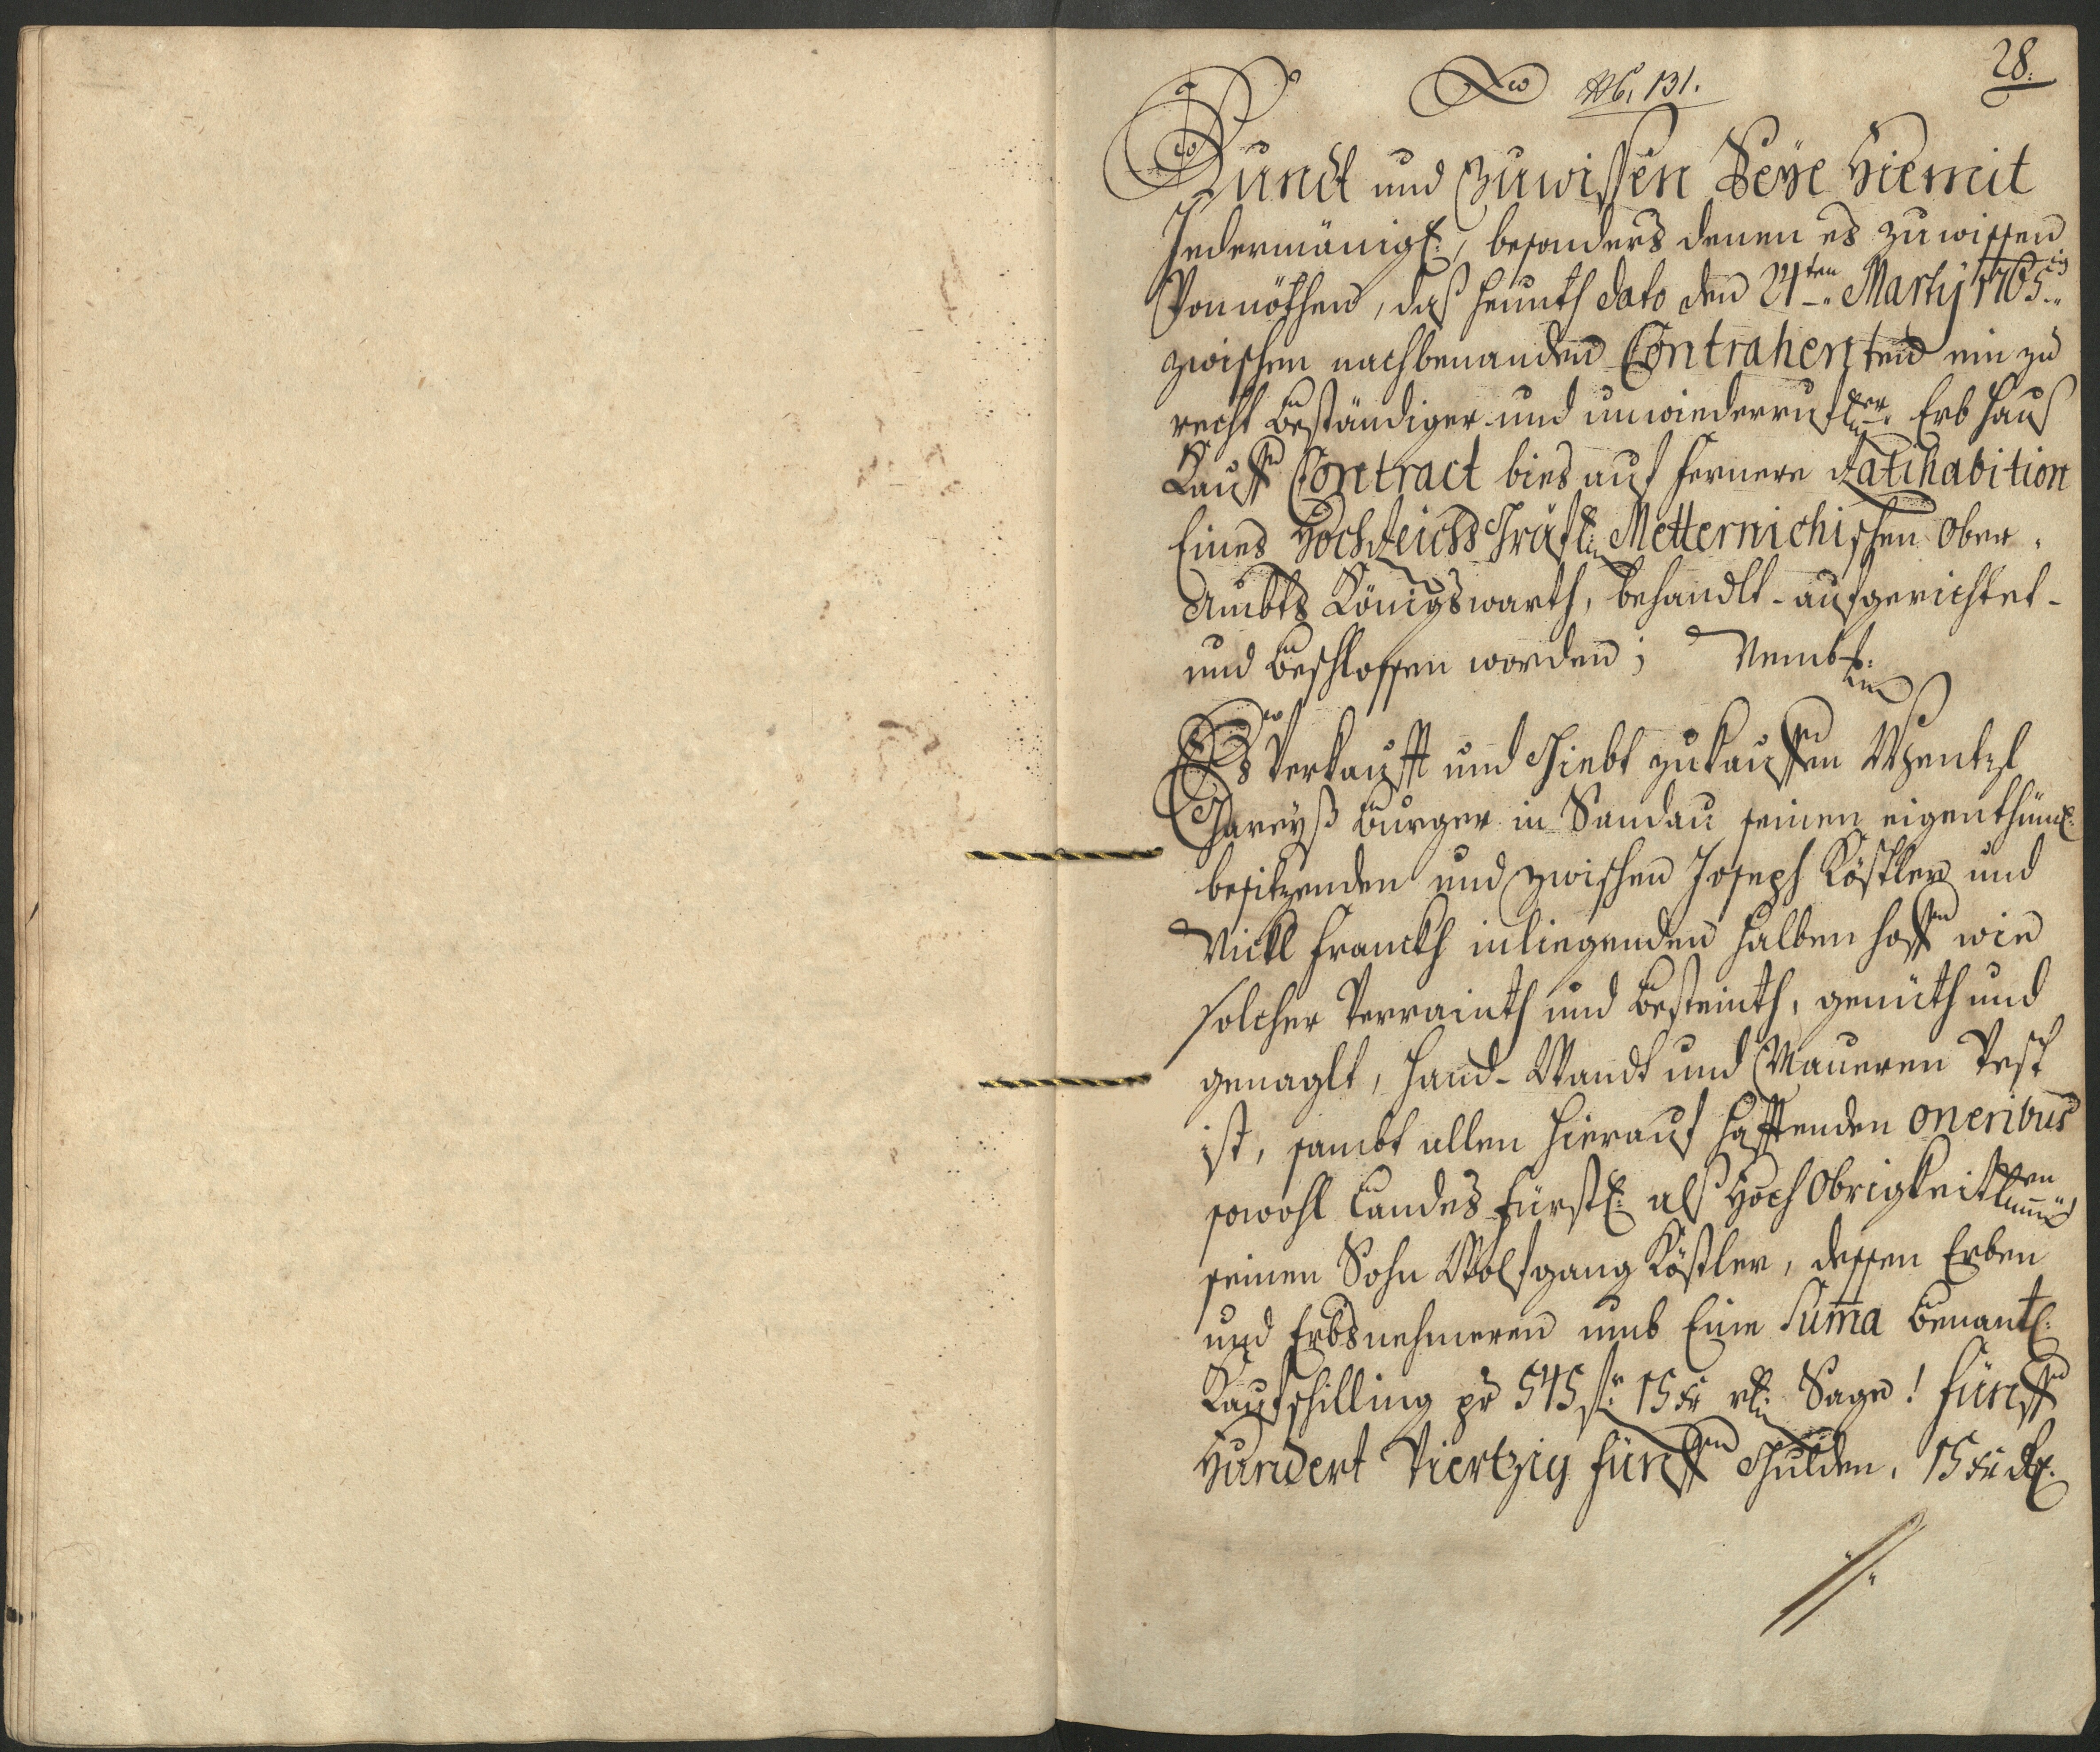 28.
N6. 131.
Kundt und Zuwissen Seÿe Hiemit
Jedermänigl: besonders denen es zu wissen
Vonnöthen, daß heunth dato den 21ten Martij 1765
zwischen nachbenanden Contrahenten ein zu
recht beständiger und unwiederruflicher Erb hauß
Kauff Contract bies auf fernere Ratihabition
Eines Hoch Reichs Gräfl: Metternichischen Ober-
Ambts Königswarth, behandlt- aufgerichtet-
und beschlossen worden; Nembl:
Es Verkaufft und Giebt zu kauffen Wentzl
Gareyß burger in Sandau seinen eigenthüml:
besitzenden und zwischen Joseph Köstler und
Nickl Franckh inliegenden halben hoff wie
solcher Verrainth und besteinth, genüth und
genaglt, hand- Wandt und Maueren Vest
ist, sambt allen hierauf hafftenden oneribus
sowohl Landes fürstl: alß Hoch Obrigkeitlichen
seinen Sohn Wolfgang Köstler, dessen Erben
und Erbsnehmeren umb Eine Suma benantl:
Kaufschilling pr 545 fl: 15 Xr rh: Sage! fünff
Hundert Viertzig fünff Gulden, 15 Xr